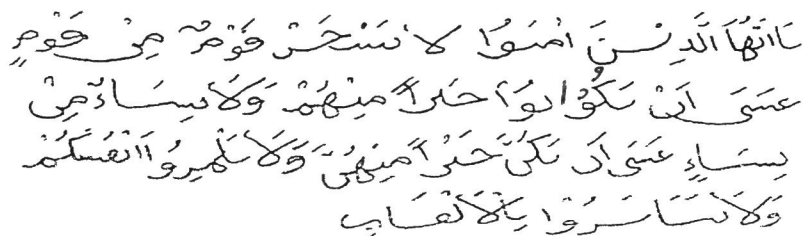 يَااَيُّهَا الَّذِيْنَ اٰمَنُوْا لَا يَسْخَرْ قَوْمٌ مِنْ قَوْمٍ
عَسَى اَنْ يَكُوْنُوْا خَيْرًا مِنْهُمْ وَلَا نِسَاءٌ مِنْ
نِسَاءٍ عَسَى اَنْ يَكُنَّ خَيْرًا مِنْهُنَّ وَلَا تَلْمِزُوْا اَنْفُسَكُمْ
وَلَا تَنَابَزُوْا بِالْاَلْقَابِ